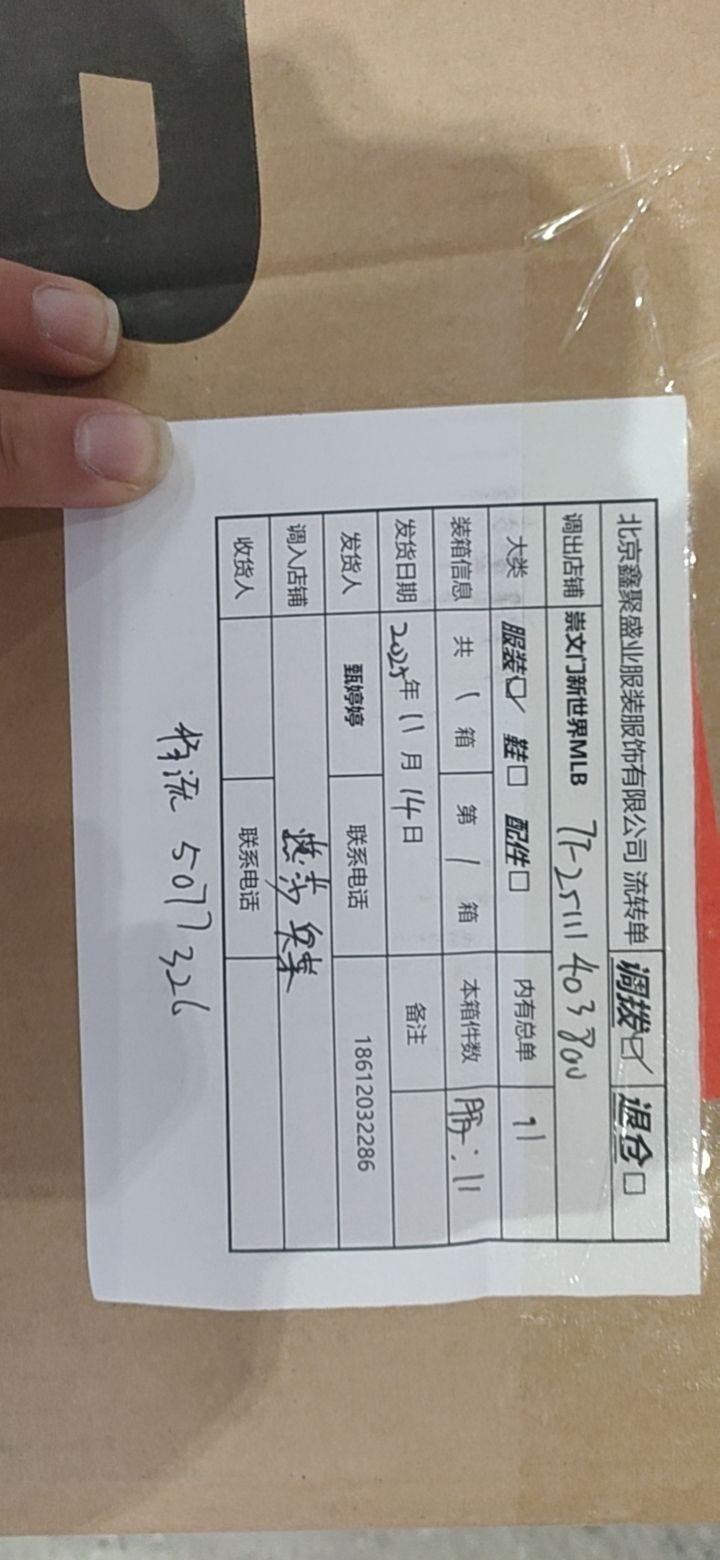 北京鑫聚盛业服装服饰有限公司 流转单 调拨☑ 退仓☐
调出店铺 崇文门新世界MLB 77-25111403800
大类 服装☑ 鞋☐ 配件☐ 内有总单 11
装箱信息 共 1 箱 第 1 箱 本箱件数 服:11
发货日期 2025年11月14日 备注
发货人 甄婷婷 联系电话 18612032286
调入店铺 燕莎奥莱
收货人 联系电话
物流 5077326